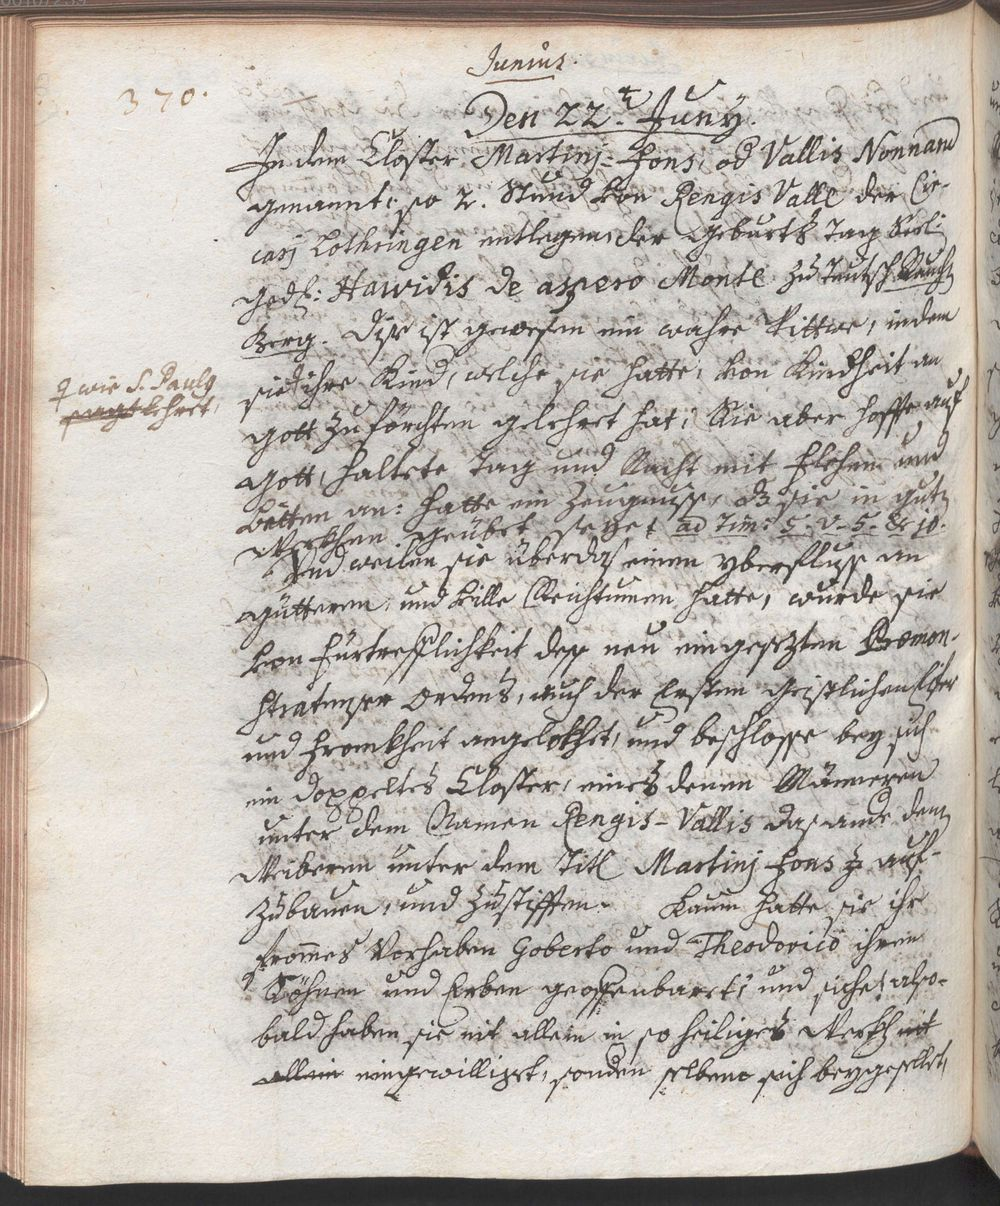 Junius.
370.
Den 22.t Juny.
In dem Closter Martinj-Fons, od Vallis Nonnarū
genannt, so 2. Stund von Rengis Valle der Cir-
carj Lothringen entlegen, der Geburts Tag Seeli-
ged: Hawidis de aspero Monte zu Teutsch Rauch
Berg. Dise ist gewesen ein wahre Wittwe, indem
sie ihre Kind, welche sie hatte, von Kindheit an
♀ wie S. Pauly
sagt lehret,
Gott zu förchten gelehret hat, Sie aber hoffte auf
Gott, haltete Tag und Nacht mit flehen und
bätten an: hatte ein Zeugnuss, dz sie in gutē
Werkhen geübet seye, ad Tim: 5. v. 5. & 10.
Und weilen sie überdas einen yberfluss an
Gütteren, und ville Reichtumen hatte, wurde sie
von fürtrefflichkeit dess neu eingesezten Præmon-
stratenser Ordens, auch der Ersten Geistlichen Eifer
und fromkheit angelokhet, und beschlosse bey sich
ein doppeltes Closter, eines denen Männeren
unter dem Namen Rengis-Vallis das ande denē
Weiberen unter dem Titl Martinj Fons z auf-
zubauen, und zustifften. Kaum hatte sie ihr
frommes Vorhaben Goberto und Theodorico ihren
Söhnen und Erben geoffenbaret, und siehe! also-
bald haben sie nit allein in so heiliges Werkh nit
allein eingewilliget, sonden selbene sich beygesellet,